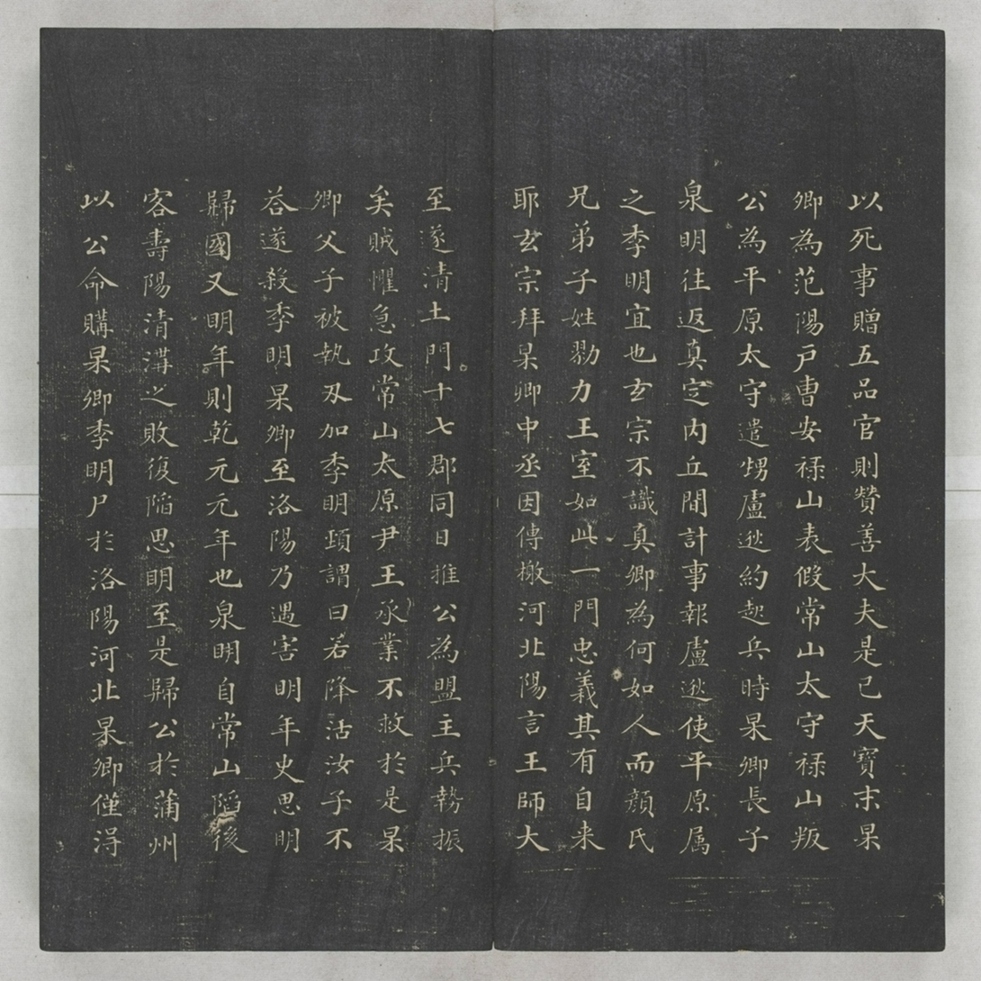 以死事贈五品官則贊善大夫是已天寶末杲
卿為范陽戶曹安祿山表假常山太守祿山叛
公為平原太守遣甥盧逖約起兵時杲卿長子
泉明往返真定內丘間計事報盧逖使平原属
之季明宜也玄宗不識真卿為何如人而顏氏
兄弟子姓勠力王室如此一門忠義其有自来
耶玄宗拜杲卿中丞因傳檄河北陽言王師大
至遂清土門十七郡同日推公為盟主兵勢振
矣賊懼急攻常山太原尹王承業不救於是杲
卿父子被執刃加季明頸謂曰若降活汝子不
荅遂殺季明杲卿至洛陽乃遇害明年史思明
歸國又明年則乾元元年也泉明自常山陷後
客壽陽清溝之敗復陷思明至是歸公於蒲州
以公命購杲卿季明尸於洛陽河北杲卿僅淂